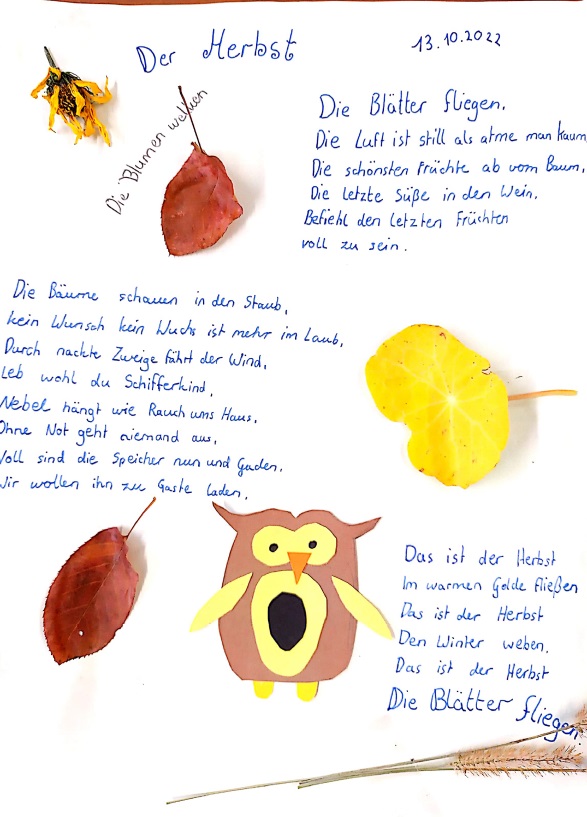 Der Herbst
13.10.2022
Die Blumen welken
Die Blätter fliegen.
Die Luft ist still als atme man kaum
Die schönsten Früchte ab vom Baum,
Die letzte Süße in den Wein.
Befiehl den letzten Früchten
voll zu sein.
Die Bäume schauen in den Staub,
kein Wunsch kein Wuchs ist mehr im Laub,
Durch nackte Zweige fährt der Wind,
Leb wohl du Schifferkind,
Nebel hängt wie Rauch ums Haus,
Ohne Not geht niemand aus,
Voll sind die Speicher nun und Gaden,
Wir wollen ihn zu Gaste laden,
Das ist der Herbst
Im warmen Golde fließen
Das ist der Herbst
Den Winter weben.
Das ist der Herbst
Die Blätter fliegen.